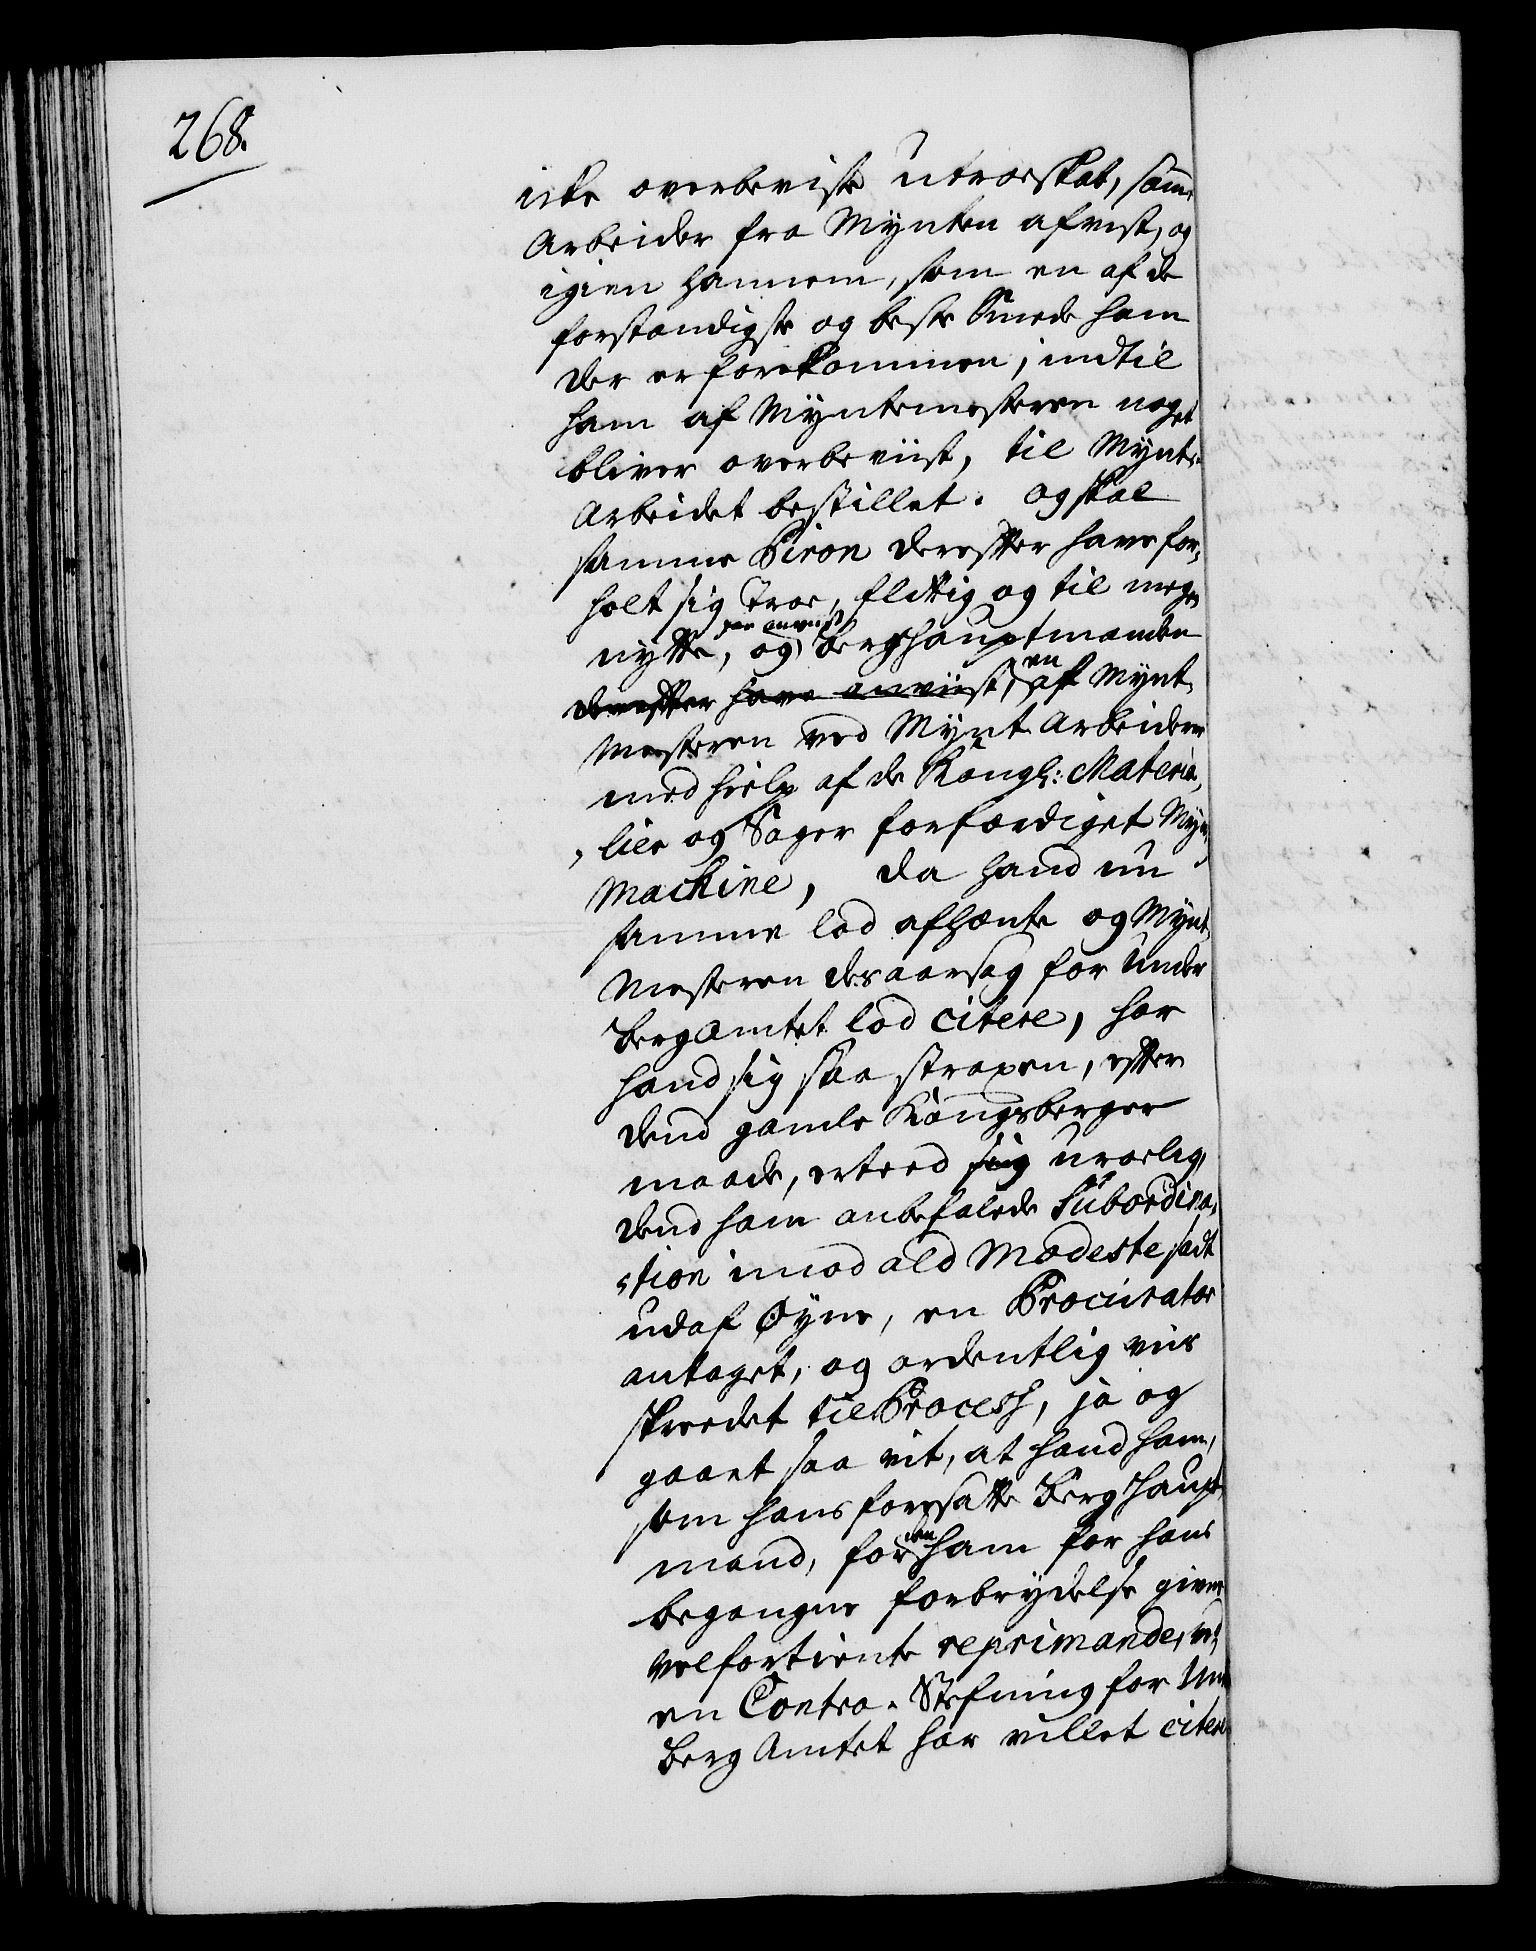 268.
icke overbeviste Utroeskab, samme
Arbeider fra Mynten afvist, og
igien hannem, som en af de
forstandigste og beste Smede ham
der er forekommen, indtil
ham af Myntemesteren noget
bliver overbeviist, til Mynt-
Arbeidet bestillet. og skal
samme Piron derefter have for-
holt sig Troe, flittig og til megen
nytte, og har anviist Berghauptmanden
derefter have anviist, en af Mynt-
Mesteren ved Mynt Arbeiderne
med hielp af de Kongl: Materia-
-lier og Sager forfærdiget Mynt-
Machine, da hand nu
samme lod afhænte og Mynt-
Mesteren des aarsag for Under
bergAmtet lod citere, har
hand sig saa straxen, efter
dend gamle Kongsberger
maade, erteed sig uroelig,
dend ham anbefalede Subordina-
-tion imod ald Modestie sadt
udaf Øyne, en Procurator
antaget, og ordentlig viis
skreedet til Process, ja og
gaaet saa vit, at hand ham,
som hans foresatte Berghaupt-
mand, for den ham for hans
begangne forbrydelse givne
velfortiente reprimande, ved
en Contra-Stefning for Under
Berg Amtet har villet citere